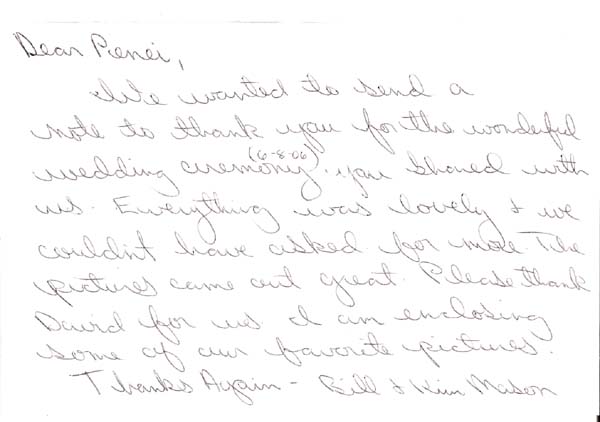 Dear Renei,
We wanted to send a
note to thank you for the wonderful
wedding ceremony (6-8-06). you shared with
us. Everything was lovely & we
couldn't have asked for more. The
pictures came out great. Please thank
David for us. I am enclosing
some of our favorite pictures.
Thanks Again - Bill & Kim Mason